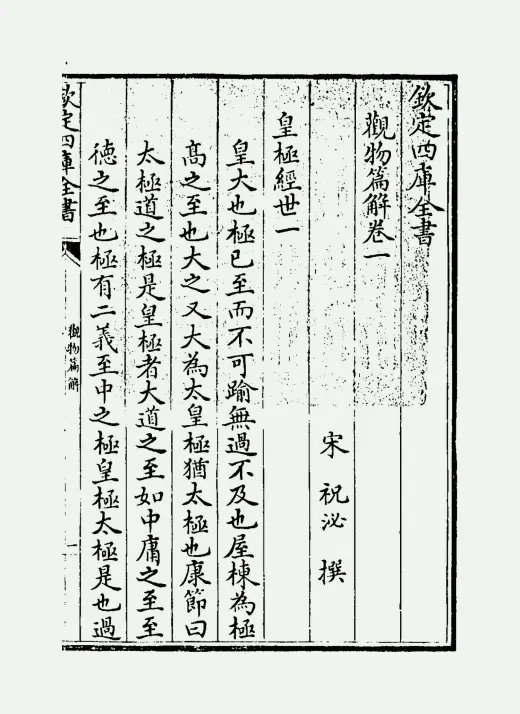 欽定四庫全書
觀物篇解卷一
宋 祝泌 撰
皇極經世一
皇大也極已至而不可踰無過不及也屋棟為極
髙之至也大之又大為太皇極猶太極也康節曰
太極道之極是皇極者大道之至如中庸之至至
德之至也極有二義至中之極皇極太極是也過
欽定四庫全書
觀物篇解
一